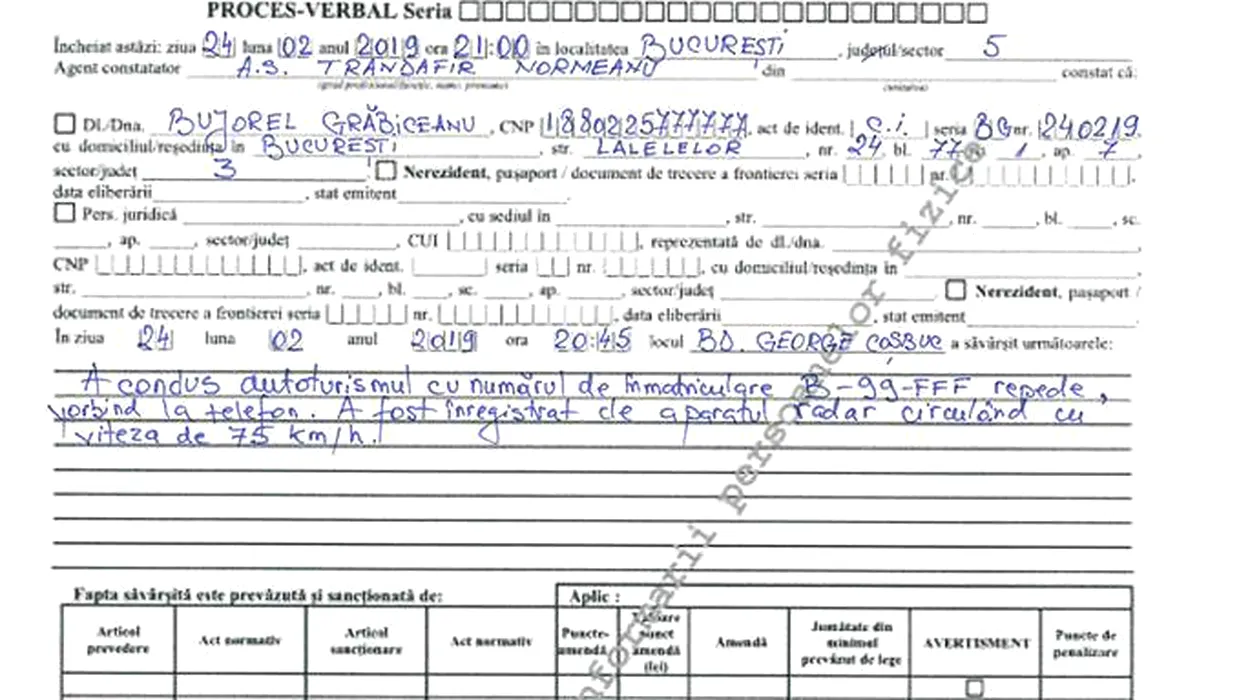 PROCES-VERBAL Seria
Încheiat astăzi: ziua 24 luna 02 anul 2019 ora 21:00 în localitatea BUCUREȘTI, județul/sector 5
Agent constatator A.S. TRANDAFIR NORMEANU din constat că:
Dl./Dna. BUJOREL GRĂBICEANU, CNP 1880225777777, act de ident. C.i. seria BG nr. 240219
cu domiciliul/reședința în BUCURESTI, str. LALELELOR, nr. 24, bl. 77, 1, ap. 7
sector/județ 3 Nerezident, pașaport / document de trecere a frontierei seria nr.
data eliberării, stat emitent
Pers. juridică, cu sediul în, str., nr., bl., sc.
, ap., sector/județ, CUI, reprezentată de dl./dna.
CNP, act de ident. seria nr., cu domiciliul/reședința în
str., nr., bl., sc., ap., sector/județ Nerezident, pașaport /
document de trecere a frontierei seria nr., data eliberării, stat emitent
În ziua 24 luna 02 anul 2019 ora 20:45 locul BD. GEORGE COȘBUC a săvârșit următoarele:
A condus autoturismul cu numărul de înmatriculare B-99-FFF repede,
vorbind la telefon. A fost înregistrat de aparatul radar circulând cu
viteza de 75 km/h.
Fapta săvârșită este prevăzută și sancționată de: Aplic :
Articol prevedere Act normativ Articol sancționare Act normativ Puncte-amendă punct amendă (lei) Amendă Jumătate din minimul prevăzut de lege AVERTISMENT Puncte de penalizare
informarii persoanelor fizice